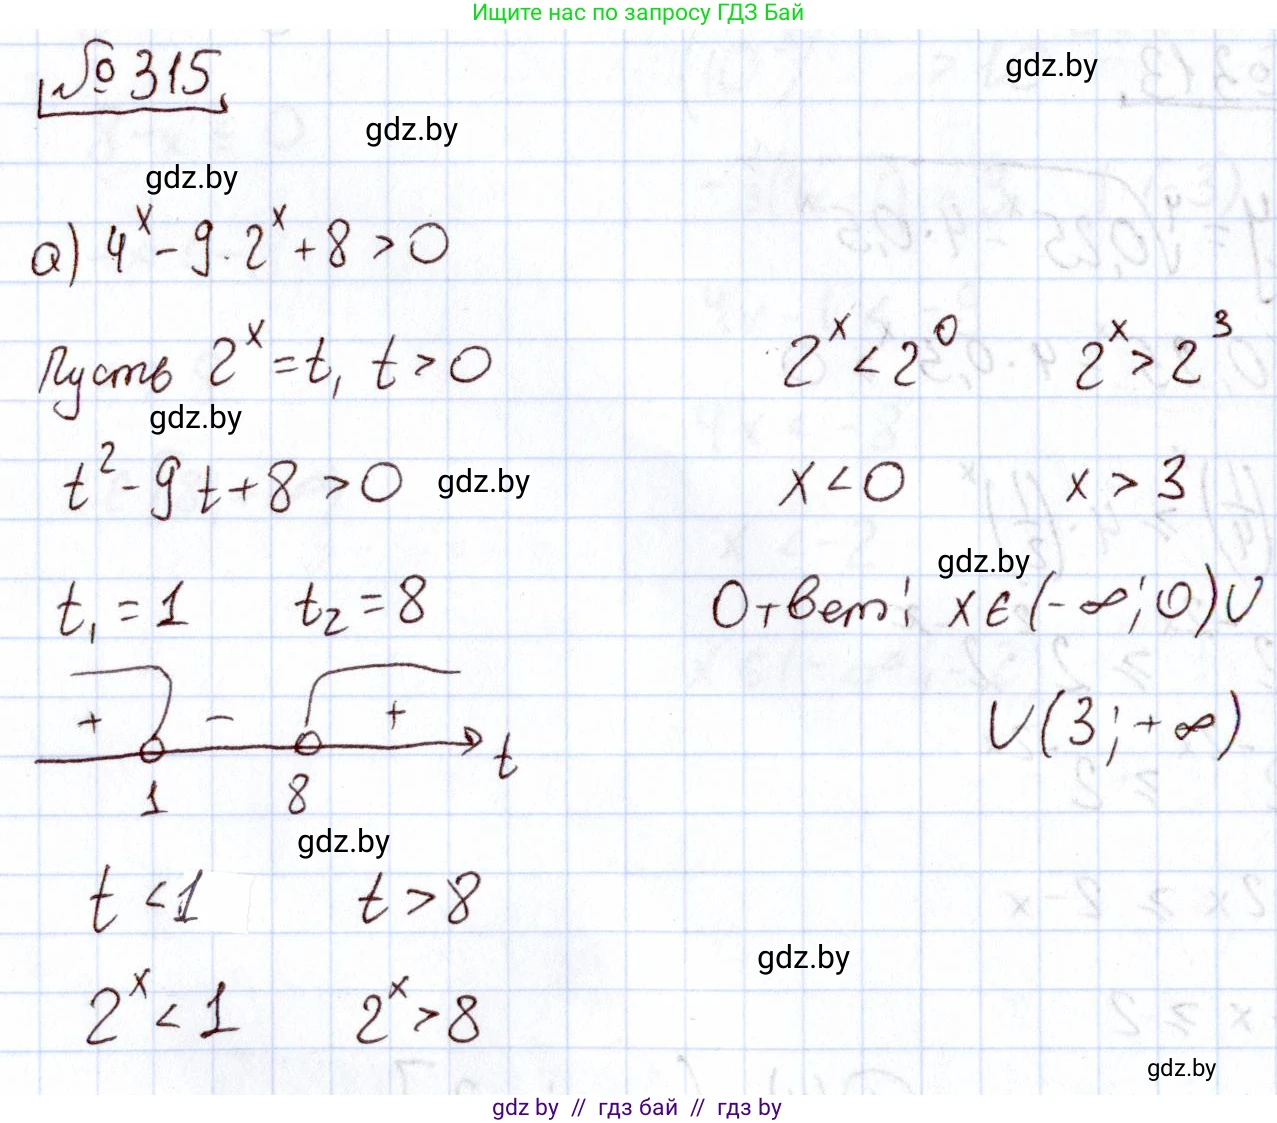 Ищите нас по запросу ГДЗ Бай
№ 315
gdz.by
gdz.by
gdz.by
а) 4^x - 9 · 2^x + 8 > 0
Пусть 2^x = t, t > 0
gdz.by
t^2 - 9t + 8 > 0
gdz.by
t₁ = 1 t₂ = 8
+ - + t
1 8
gdz.by
t < 1 t > 8
2^x < 1 2^x > 8
2^x < 2^0 2^x > 2^3
x < 0 x > 3
gdz.by
Ответ: x ∈ (-∞; 0) ∪
∪ (3; +∞)
gdz.by
gdz.by
gdz by // гдз бай // гдз by